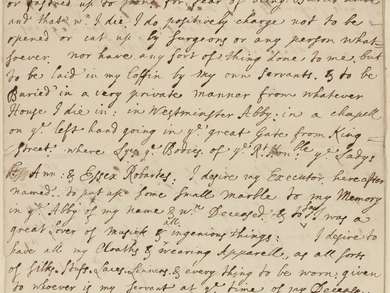 and that wn. I die, I do positively charge not to be
opened or cut up by surgeons or any person what
soever: nor have any sort of thing done to me, but
to be laid in my Coffin by my own Servants. & to be
Buried in a very private manner from whatever
House I die in: in Westminster Abby: in a chapell
on ye. left hand going in ye. great Gate from King
Street: where Lys ye. Bodies of ye. Rt. Honble. ye. Ladys
Ann: & Essex Robartes. I desire my Executor hereafter
named. to put up some small marble to my Memory
in ye. Abby of my name & wn. Deceased. & till I was a
great Lover of Musick & ingenious things: I desire to
have all my Cloaths & wearing Apparell, as all sorts
of Silks, Stufs, Laces, Linnens, & every thing to be worn; given
to whoever is my Servant at ye. time of my Decease